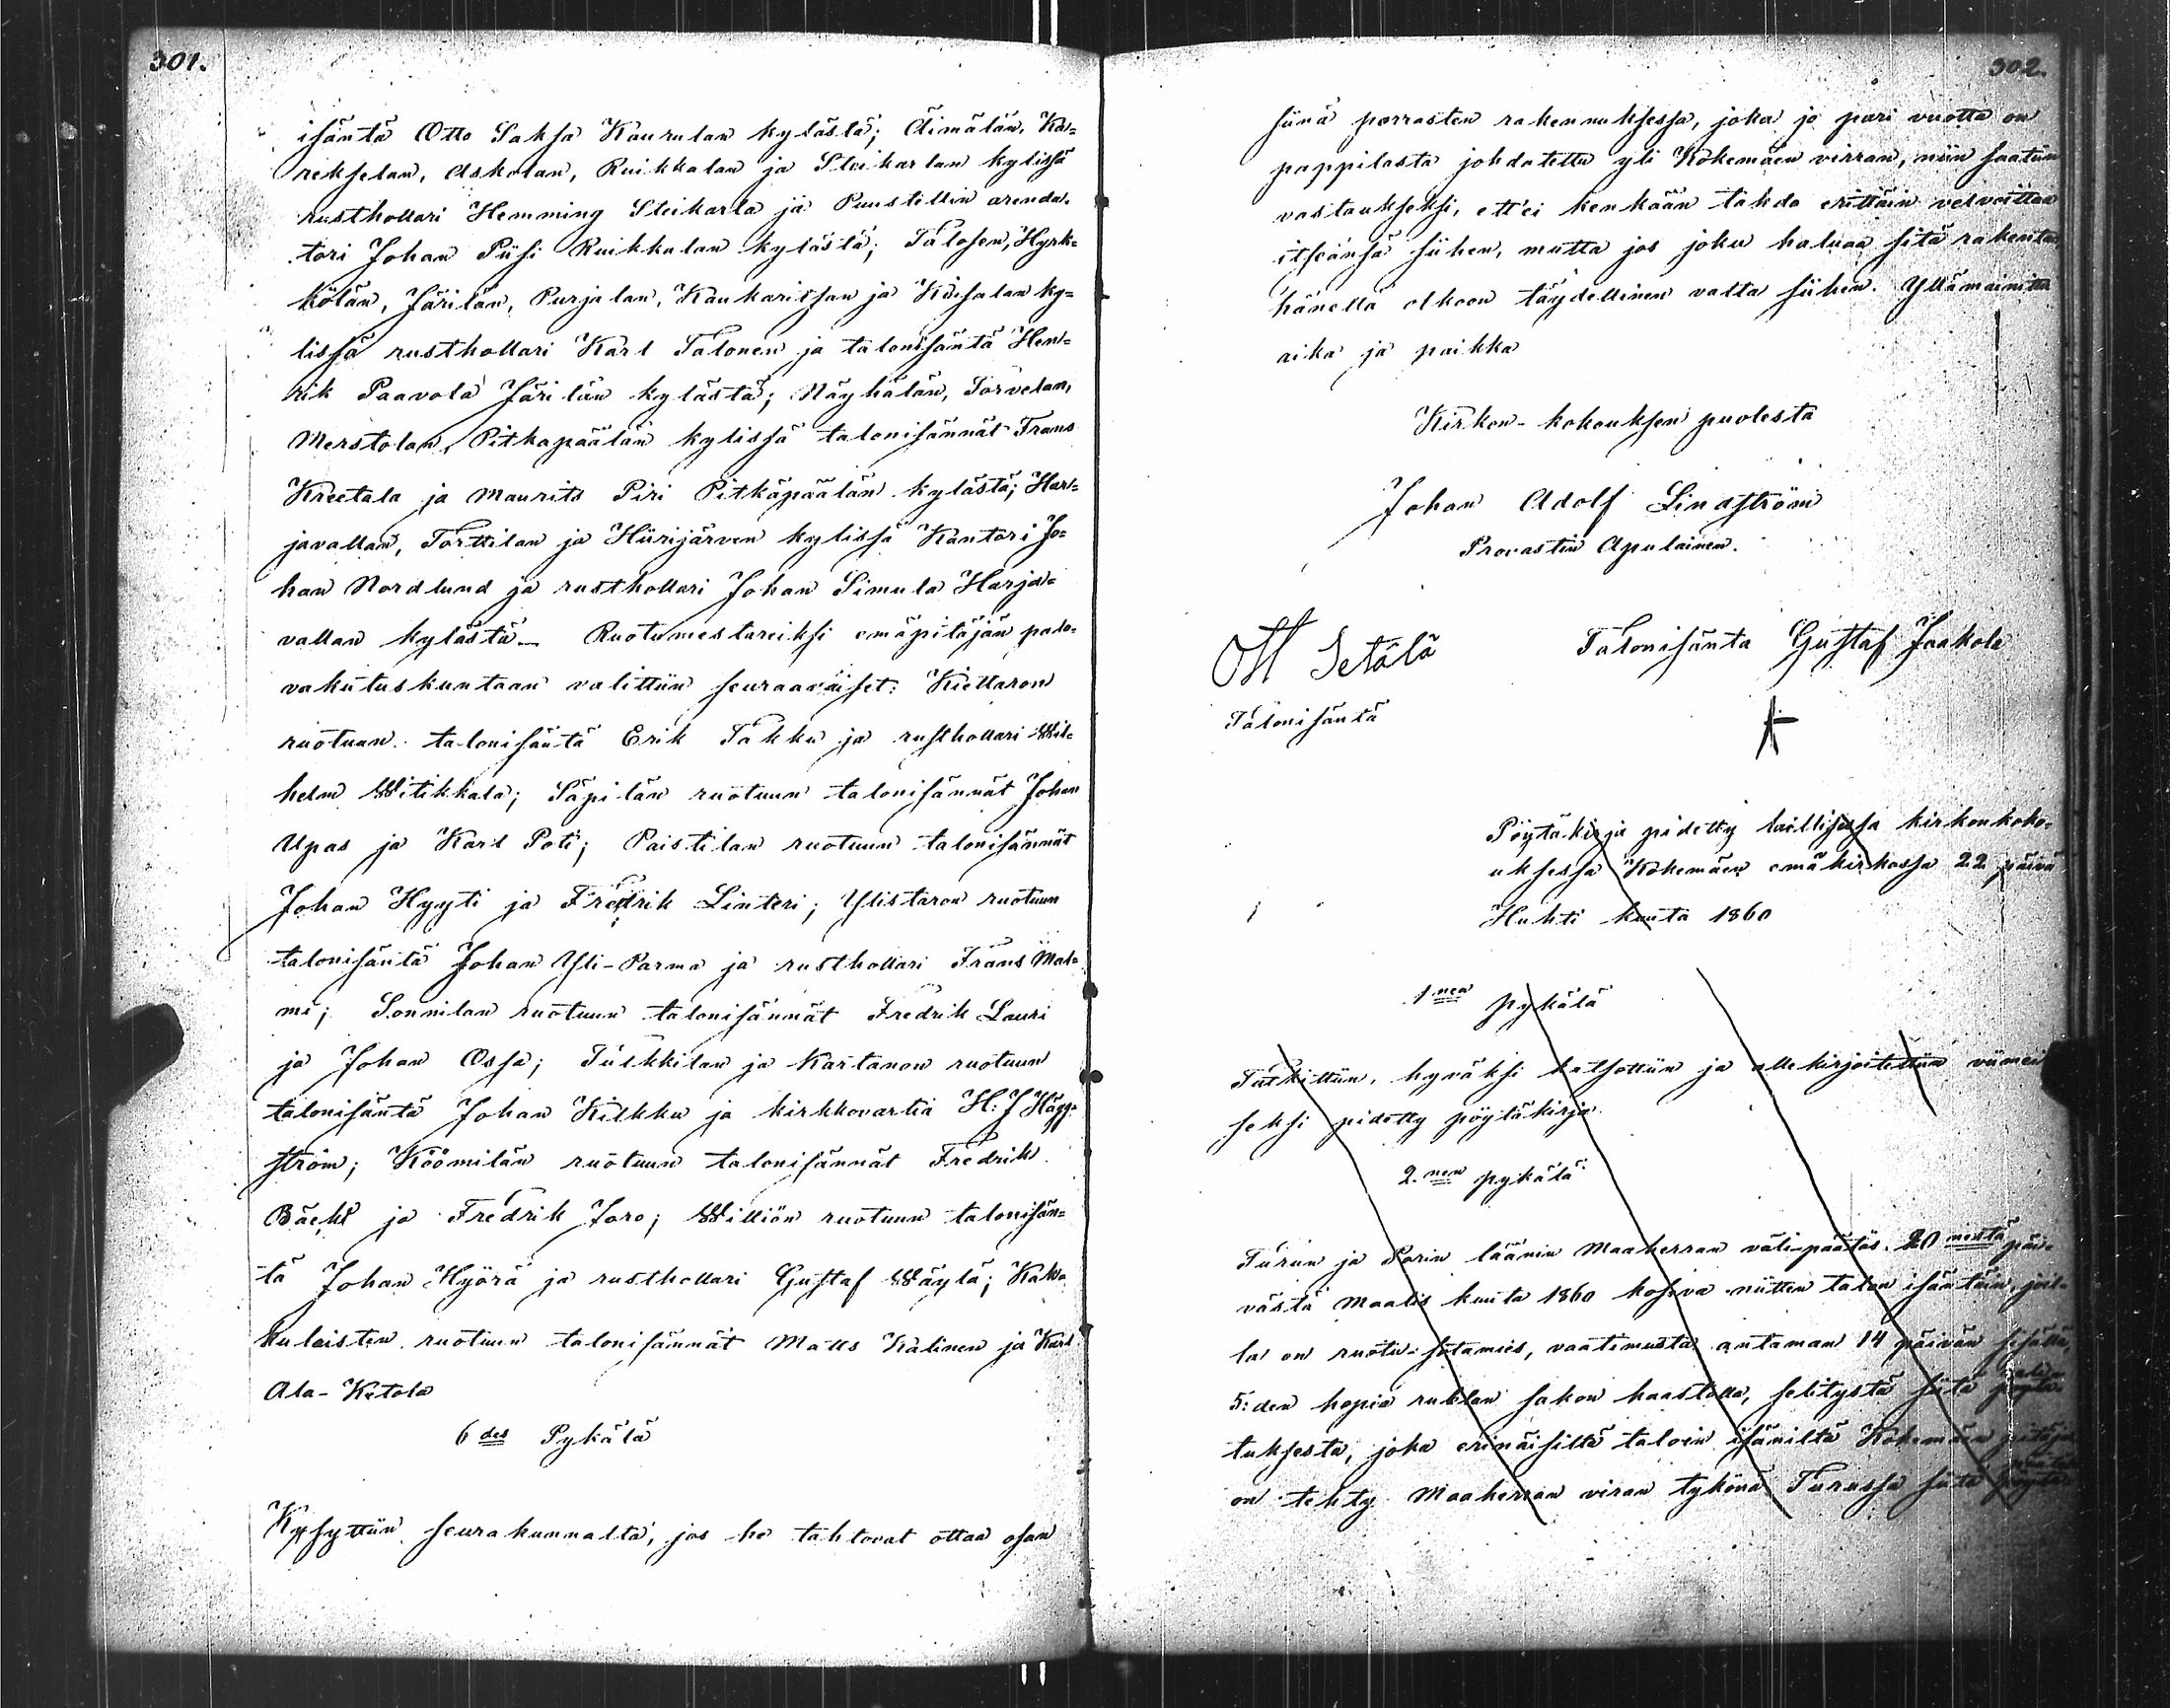 301.
isäntä Otto Saksa Kaurulan kylästä; Äimälän, Ka=
rekselan, Askolan, Ruikkalan ja Steikarlan kylissä
rusthollari Hemming Steikarla ja Puustellin arenda-
tori Johan Piisi Ruikkalan kylästä; Talosen, Hyrk=
kölän, Järilän, Purjalan, Kaukaritsan ja Kiusalan ky=
lissä rusthollari Karl Talonen ja talonisäntä Hen=
rik Paavola Järilän kylästä; Näyhälän, Torvelan,
Merstolan, Pitkapäälän kylissä talonisännät Frans
Kreetala ja Maurits Piri Pitkäpäälän kylästä; Har=
javallan, Torttilan ja Hiirijärven kylissä Kantori Jo=
han Nordlund ja rusthollari Johan Simula Harja=
vallan kylästä – Ruotumestareiksi emäpitäjän palo-
vakutuskuntaan valittiin seuraavaiset: Kiettaron
ruotuun talonisäntä Erik Takku ja rusthollari Wil=
helm Witikkala; Säpilän ruotuun talonisännät Johan
Upas ja Karl Poti; Paistilan ruotuun talonisännät
Johan Hyyti ja Fredrik Linteri; Ylistaron ruotuun
talonisäntä Johan Yli-Parma ja rusthollari Frans Mal=
mi; Sonnilan ruotuun talonisännät Fredrik Lauri
ja Johan Ossa; Tulkkilan ja Kartanon ruotuun
talonisäntä Johan Kilkku ja kirkkovartia H: J Hägg-
ström; Köömilän ruotuun talonisännät Fredrik
Bäck ja Fredrik Joro; Williön ruotuun talonisän=
tä Johan Hyörä ja rusthollari Gustaf Wäylä; Kako
kulaisten ruotuun talonisännät Matts Kalinen ja Karl
Ala-Ketola
6 des Pykälä
Kysyttiin seurakunnalta, jos he tahtovat ottaa osan
302.
siinä porrasten rakennuksessa, joka jo pari vuotta on
pappilasta johdatettu yli Kokemäen virran, niin saatiin
vastaukseksi, ett'ei kenkään tahdo erittäin velvoittaa
itseänsä siihen, mutta jos joku haluaa sitä rakentaa
hänellä olkoon täydellinen valta siihen. Yllämainittu
aika ja paikka
Kirkon-kokouksen puolesta
Johan Adolf Lindström
Provastin Apulainen.
Ott Setälä
Talonisäntä Gustaf Jaakola
Talonisäntä
Pöytäkirja pidetty laillisessa kirkonkoko-
uksessa Kokemäen emäkirkossa 22 päivä
Huhti kuuta 1860
1 nen pykälä
Tutkittiin, hyväksi katsottiin ja allekirjoitettiin viimei
seksi pidetty pöytäkirja.
2. nen pykälä
Turun ja Porin läänin Maaherran väli-päätös 20 nestä päi-
västä Maalis kuuta 1860 koskeva niitten talon isäntäin, joil-
la on ruotu-sotamies, vaatimusta antaman 14 päivän sisällä,
5: den hopia rublan sakon haastolla, selitystä siitä
tuksesta, joka erinäisiltä taloin isäniltä Kokemäen pitäjä
on tehty Maaherran viran tykönä Turussa siitä